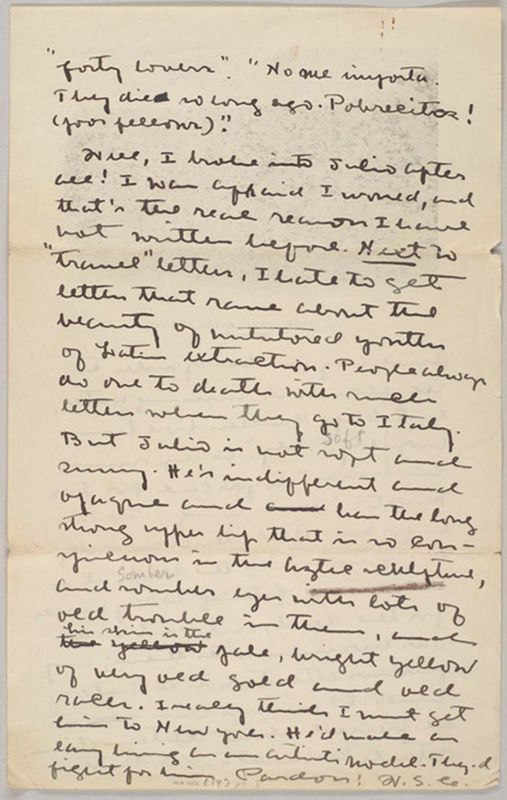 "forty lovers". "No me importa.
They died so long ago. Pobrecitos!
(poor fellows)."
Well, I broke into Julio after
all! I was afraid I would, and
that's the real reason I have
not written before. Next to
"travel" letters, I hate to get
letters that rave about the
beauty of untutored youths
of Latin extraction. People always
do one to death with such
letters when they go to Italy.
soft
But Julio is not soft and
sunny. He's indifferent and
opaque and has the long
strong upper lip that is so con-
spicuous in the aztec sculpture,
Somber
and somber eyes with lots of
old trouble in them, and
his skin is the
the yellow pale, bright yellow
of very old gold and old
races. I really think I must get
him to New York. He'd make an
easy living as an artist's model. They'd
fight for him. Pardon! W. S. C.